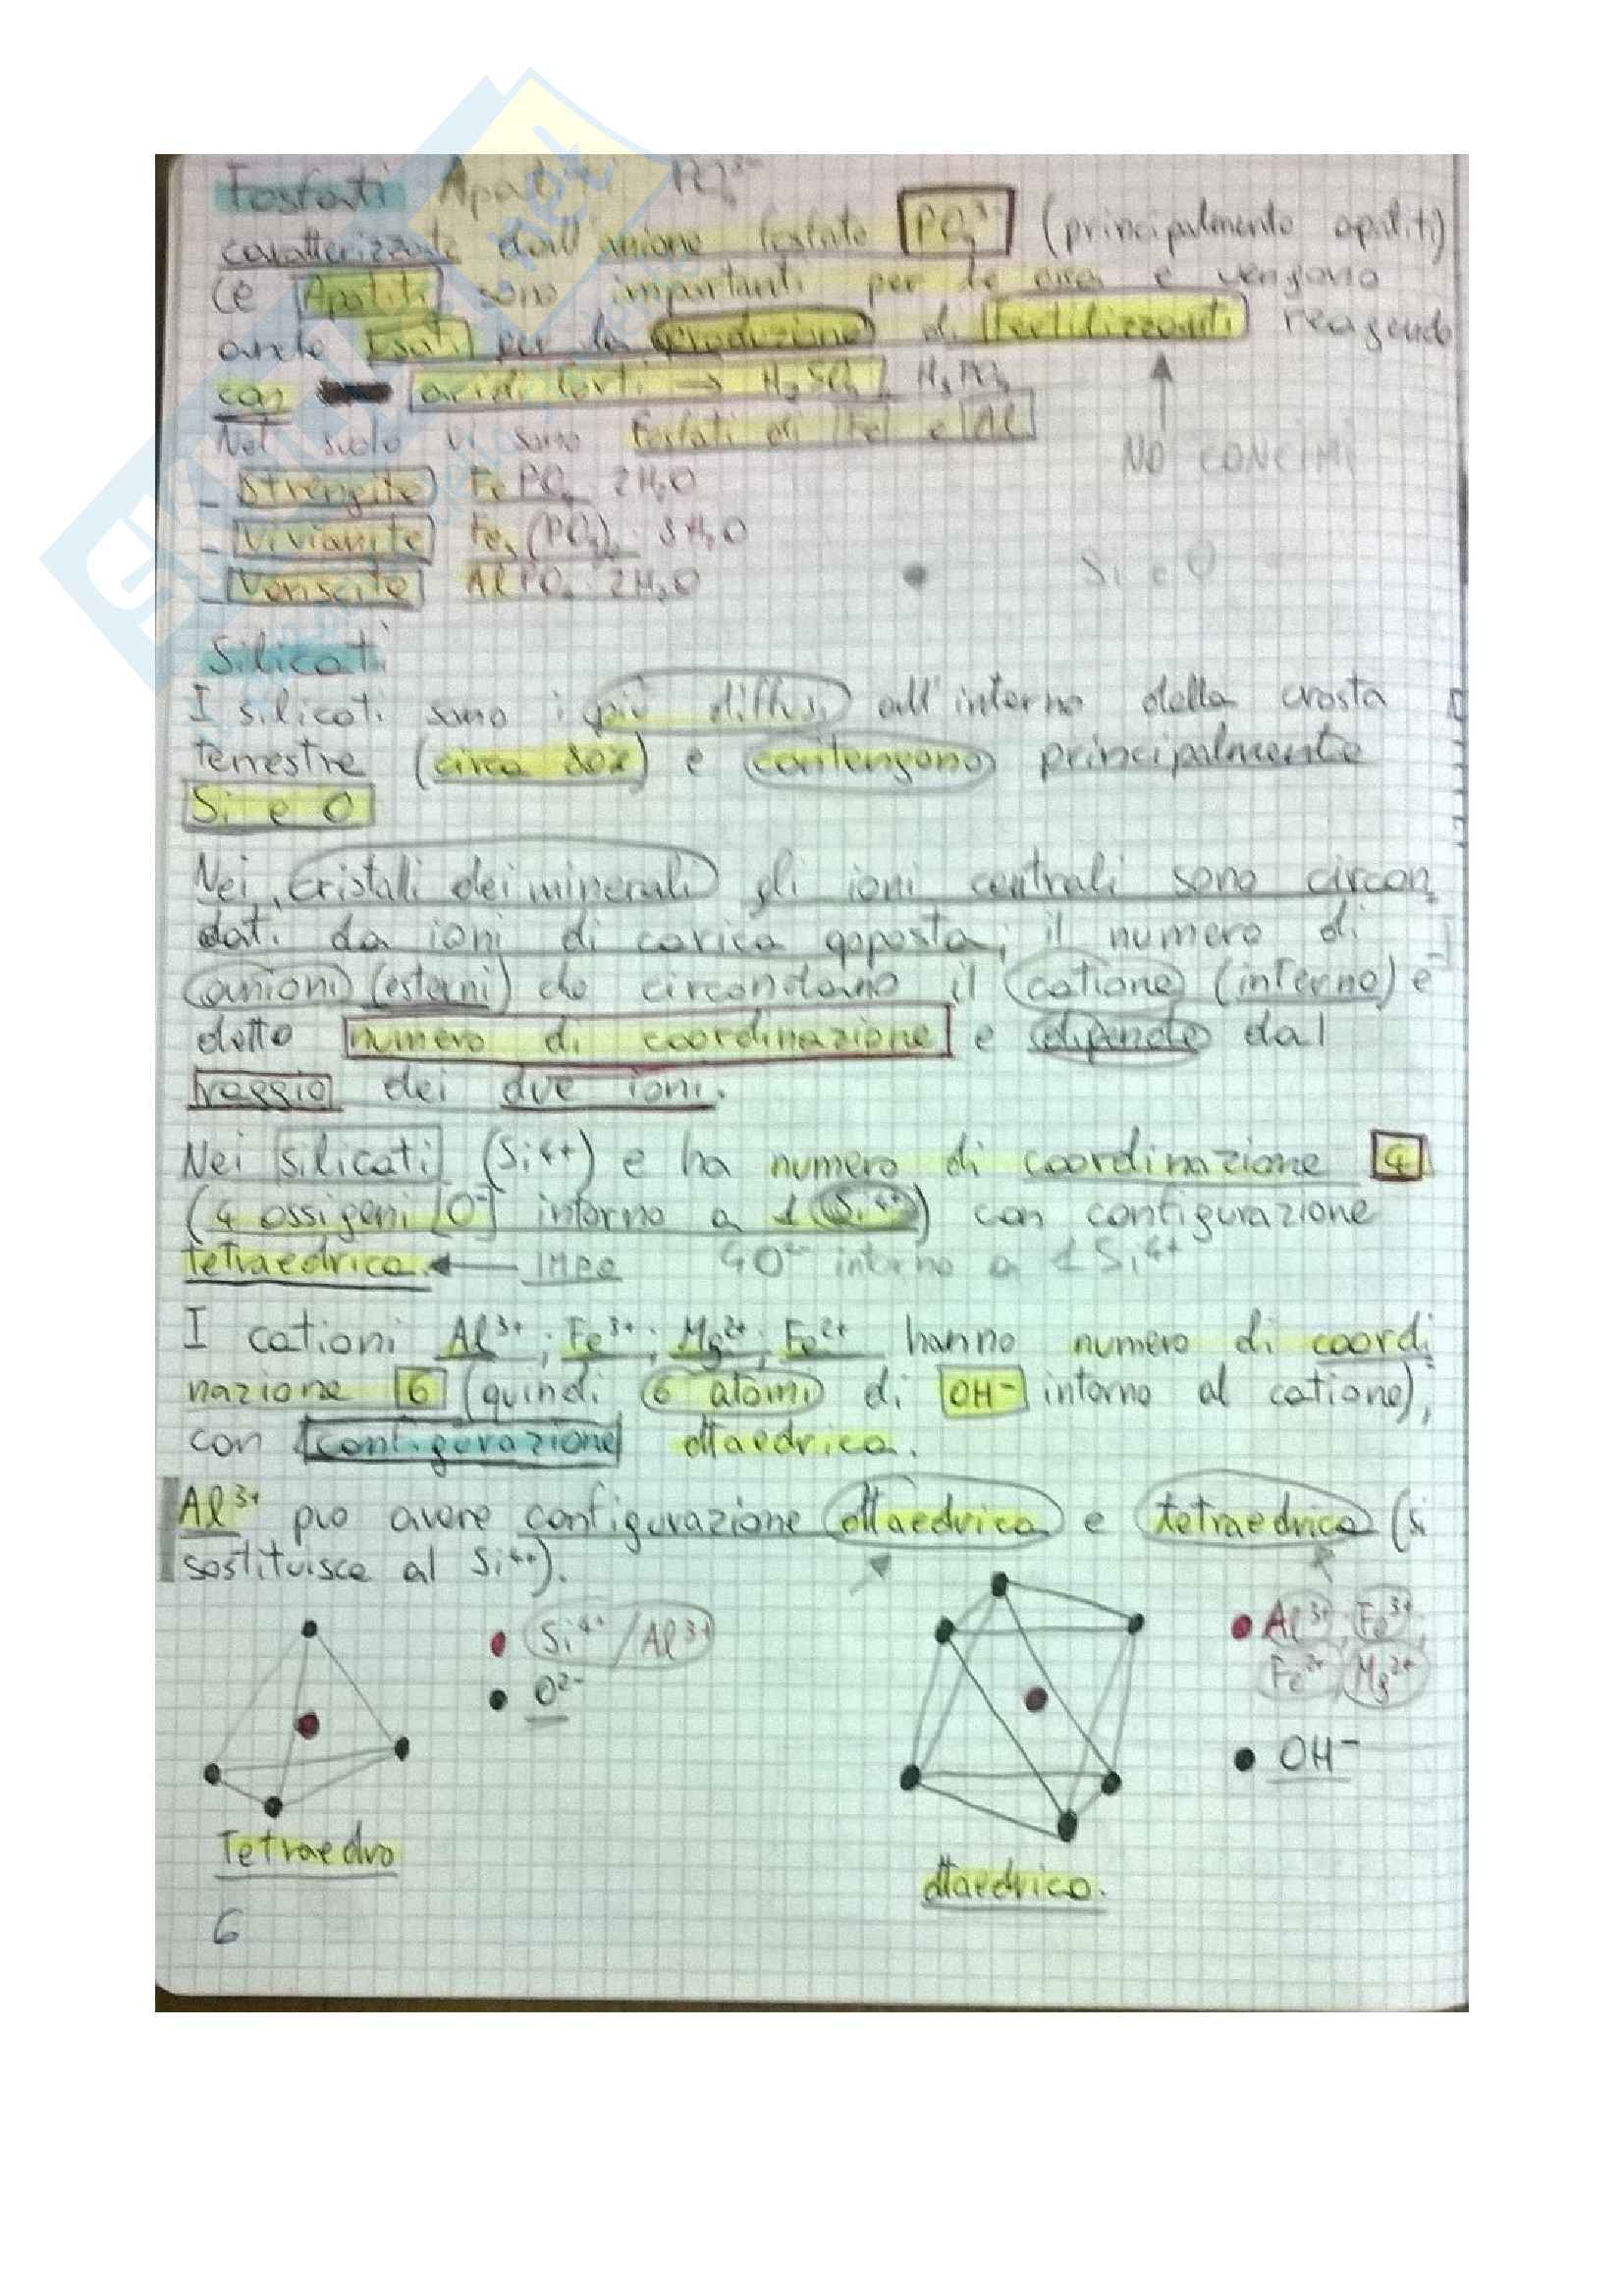 Fosfati Apatiti PO₄³⁻
caratterizzate dall'anione fosfato PO₄³⁻ (principalmente apatiti)
Le Apatiti sono importanti per le ossa e vengono
anche usati per la produzione di fertilizzanti reagendo
con acidi forti → H₂SO₄ H₃PO₄
Nel suolo vi sono fosfati di Fe e Al
NO CONCIMI
- Strengite FePO₄ 2H₂O
- Vivianite Fe₃(PO₄)₂ · 8H₂O
- Veriscite AlPO₄ · 2H₂O
Si e O
Silicati
I silicati sono i più diffusi all'interno della crosta
terrestre (circa 80%) e contengono principalmente
Si e O
Nei cristalli dei minerali gli ioni centrali sono circon
dati da ioni di carica opposta; il numero di
anioni (esterni) che circondano il catione (interno) è
detto numero di coordinazione e dipende dal
raggio dei due ioni.
Nei silicati (Si⁴⁺) e ha numero di coordinazione 4
(4 ossigeni [O⁻] intorno a 1 Si⁴⁺) con configurazione
tetraedrica. ← IMPO 4O²⁻ intorno a 1 Si⁴⁺
I cationi Al³⁺; Fe³⁺; Mg²⁺; Fe²⁺ hanno numero di coordi
nazione 6 (quindi 6 atomi di OH⁻ intorno al catione),
con configurazione ottaedrica.
Al³⁺ può avere configurazione ottaedrica e tetraedrica (si
sostituisce al Si⁴⁺).
Si⁴⁺/Al³⁺
O²⁻
Al³⁺, Fe³⁺,
Fe²⁺, Mg²⁺
OH⁻
Tetraedro
ottaedrico.
6